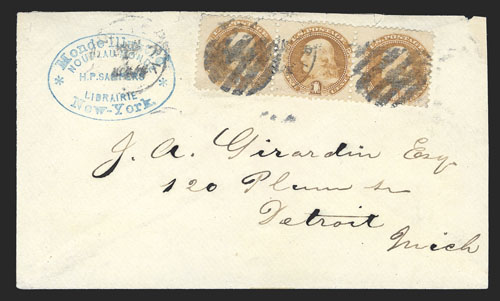 Monde Ill
H.P. SA
LIBRAIRIE
New-York.
U.S. POSTAGE
1
J. A. Girardin Esq
120 Plum St
Detroit
Mich